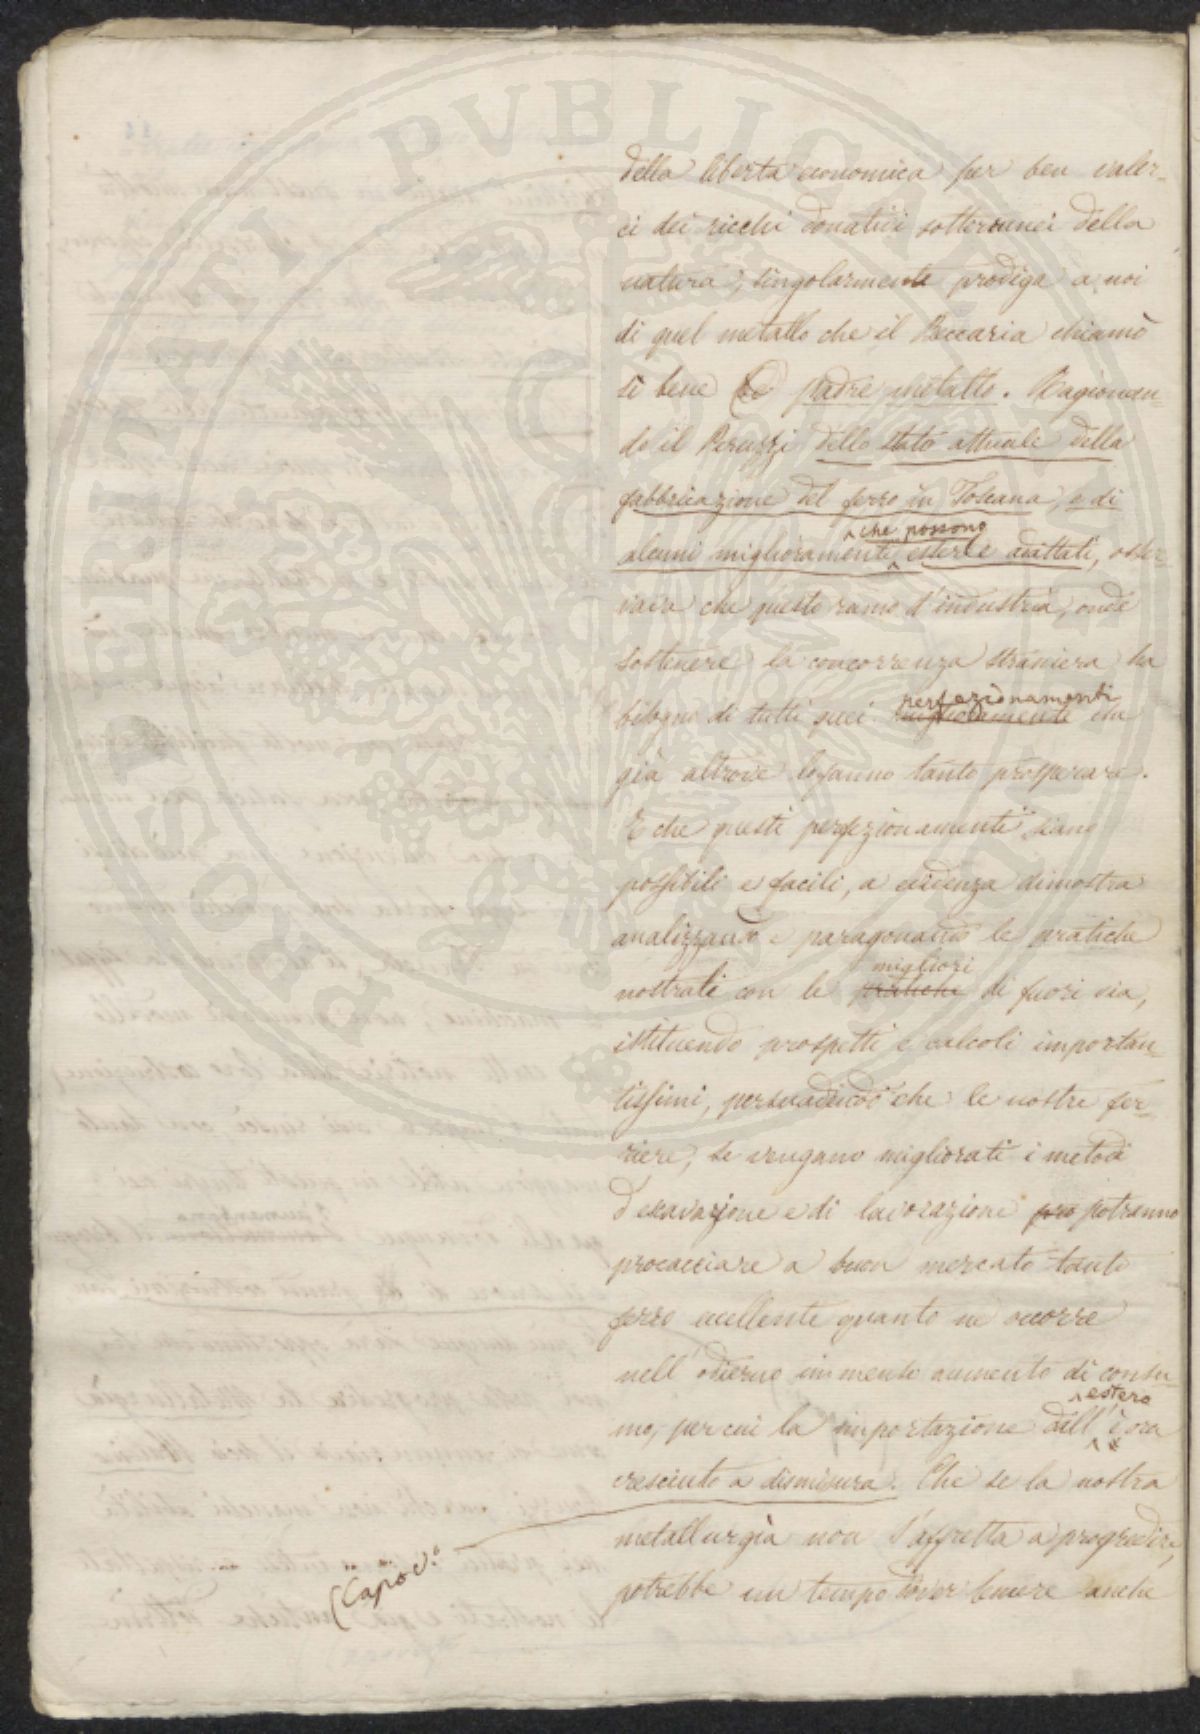 della libertà economica per ben valer-
ci dei ricchi donativi sotterranei della
natura, singolarmente prodiga a noi
di quel metallo che il Beccaria chiamò
sì bene padre metallo. Ragionan-
do il Peruzzi dello stato attuale della
fabbricazione del ferro in Toscana, e di
che possono
alcuni miglioramenti esserle adattati, osser-
vava che questo ramo d'industria, onde
sostenere la concorrenza straniera ha
perfezionamenti
bisogno di tutti quei miglioramenti che
già altrove lo fanno tanto prosperare.
E che questi perfezionamenti siano
possibili e facili, a evidenza dimostra
analizzando e paragonando le pratiche
migliori
nostrali con le pratiche di fuori via,
istituendo prospetti e calcoli importan-
tissimi, persuadendo che le nostre fer-
riere, se vengano migliorati i metodi
d'escavazione e di lavorazione pro potranno
procacciare a buon mercato tanto
ferro eccellente quanto ne occorre
nell'odierno immenso aumento di consu-
estero
mo, per cui la importazione dall' è ora
cresciuta a dismisura. Che se la nostra
metallurgia non s'affretta a progredire,
potrebbe un tempo dover temere anche
(Capov.º